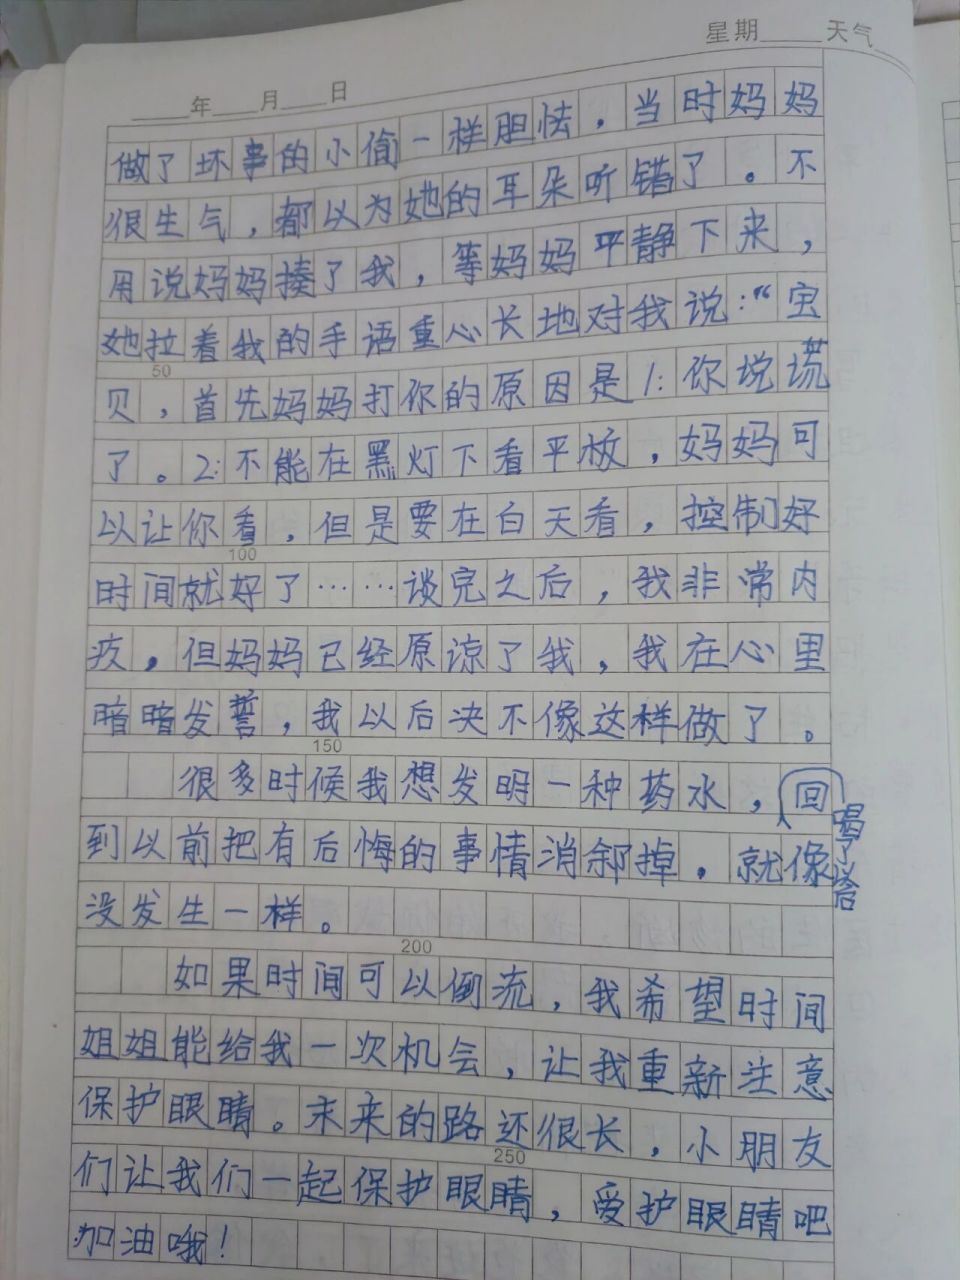 星期 天气
年 月 日
做了坏事的小偷一样胆怯，当时妈妈
很生气，都以为她的耳朵听错了。不
用说妈妈揍了我，等妈妈平静下来，
她拉着我的手语重心长地对我说：“宝
50
贝，首先妈妈打你的原因是1:你说谎
了。2:不能在黑灯下看平板，妈妈可
以让你看，但是要在白天看，控制好
100
时间就好了……谈完之后，我非常内
疚，但妈妈已经原谅了我，我在心里
暗暗发誓，我以后决不像这样做了。
150
很多时候我想发明一种药水，喝了会回
到以前把有后悔的事情消除掉。就像
没发生一样。
200
如果时间可以倒流，我希望时间
姐姐能给我一次机会，让我重新注意
保护眼睛。未来的路还很长，小朋友
250
们让我们一起保护眼睛，爱护眼睛吧
加油哦！